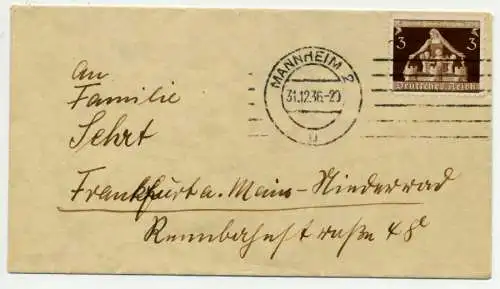 3 3
Deutsches Reich
MANNHEIM 2
31.12.36.-20
u
An
Familie
Sehrt
Frankfurt a. Main-Niederrad
Rennbahnstraße 48